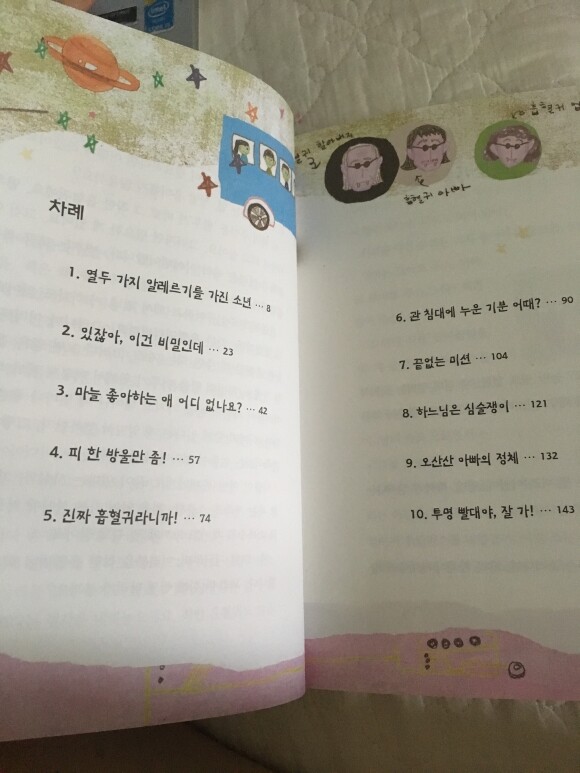 차례
1. 열두 가지 알레르기를 가진 소년 … 8
2. 있잖아, 이건 비밀인데 … 23
3. 마늘 좋아하는 애 어디 없나요? … 42
4. 피 한 방울만 좀! … 57
5. 진짜 흡혈귀라니까! … 74
할아버지
흡혈귀 아빠
흡혈귀
6. 관 침대에 누운 기분 어때? … 90
7. 끝없는 미션 … 104
8. 하느님은 심술쟁이 … 121
9. 오산산 아빠의 정체 … 132
10. 투명 빨대야, 잘 가! … 143